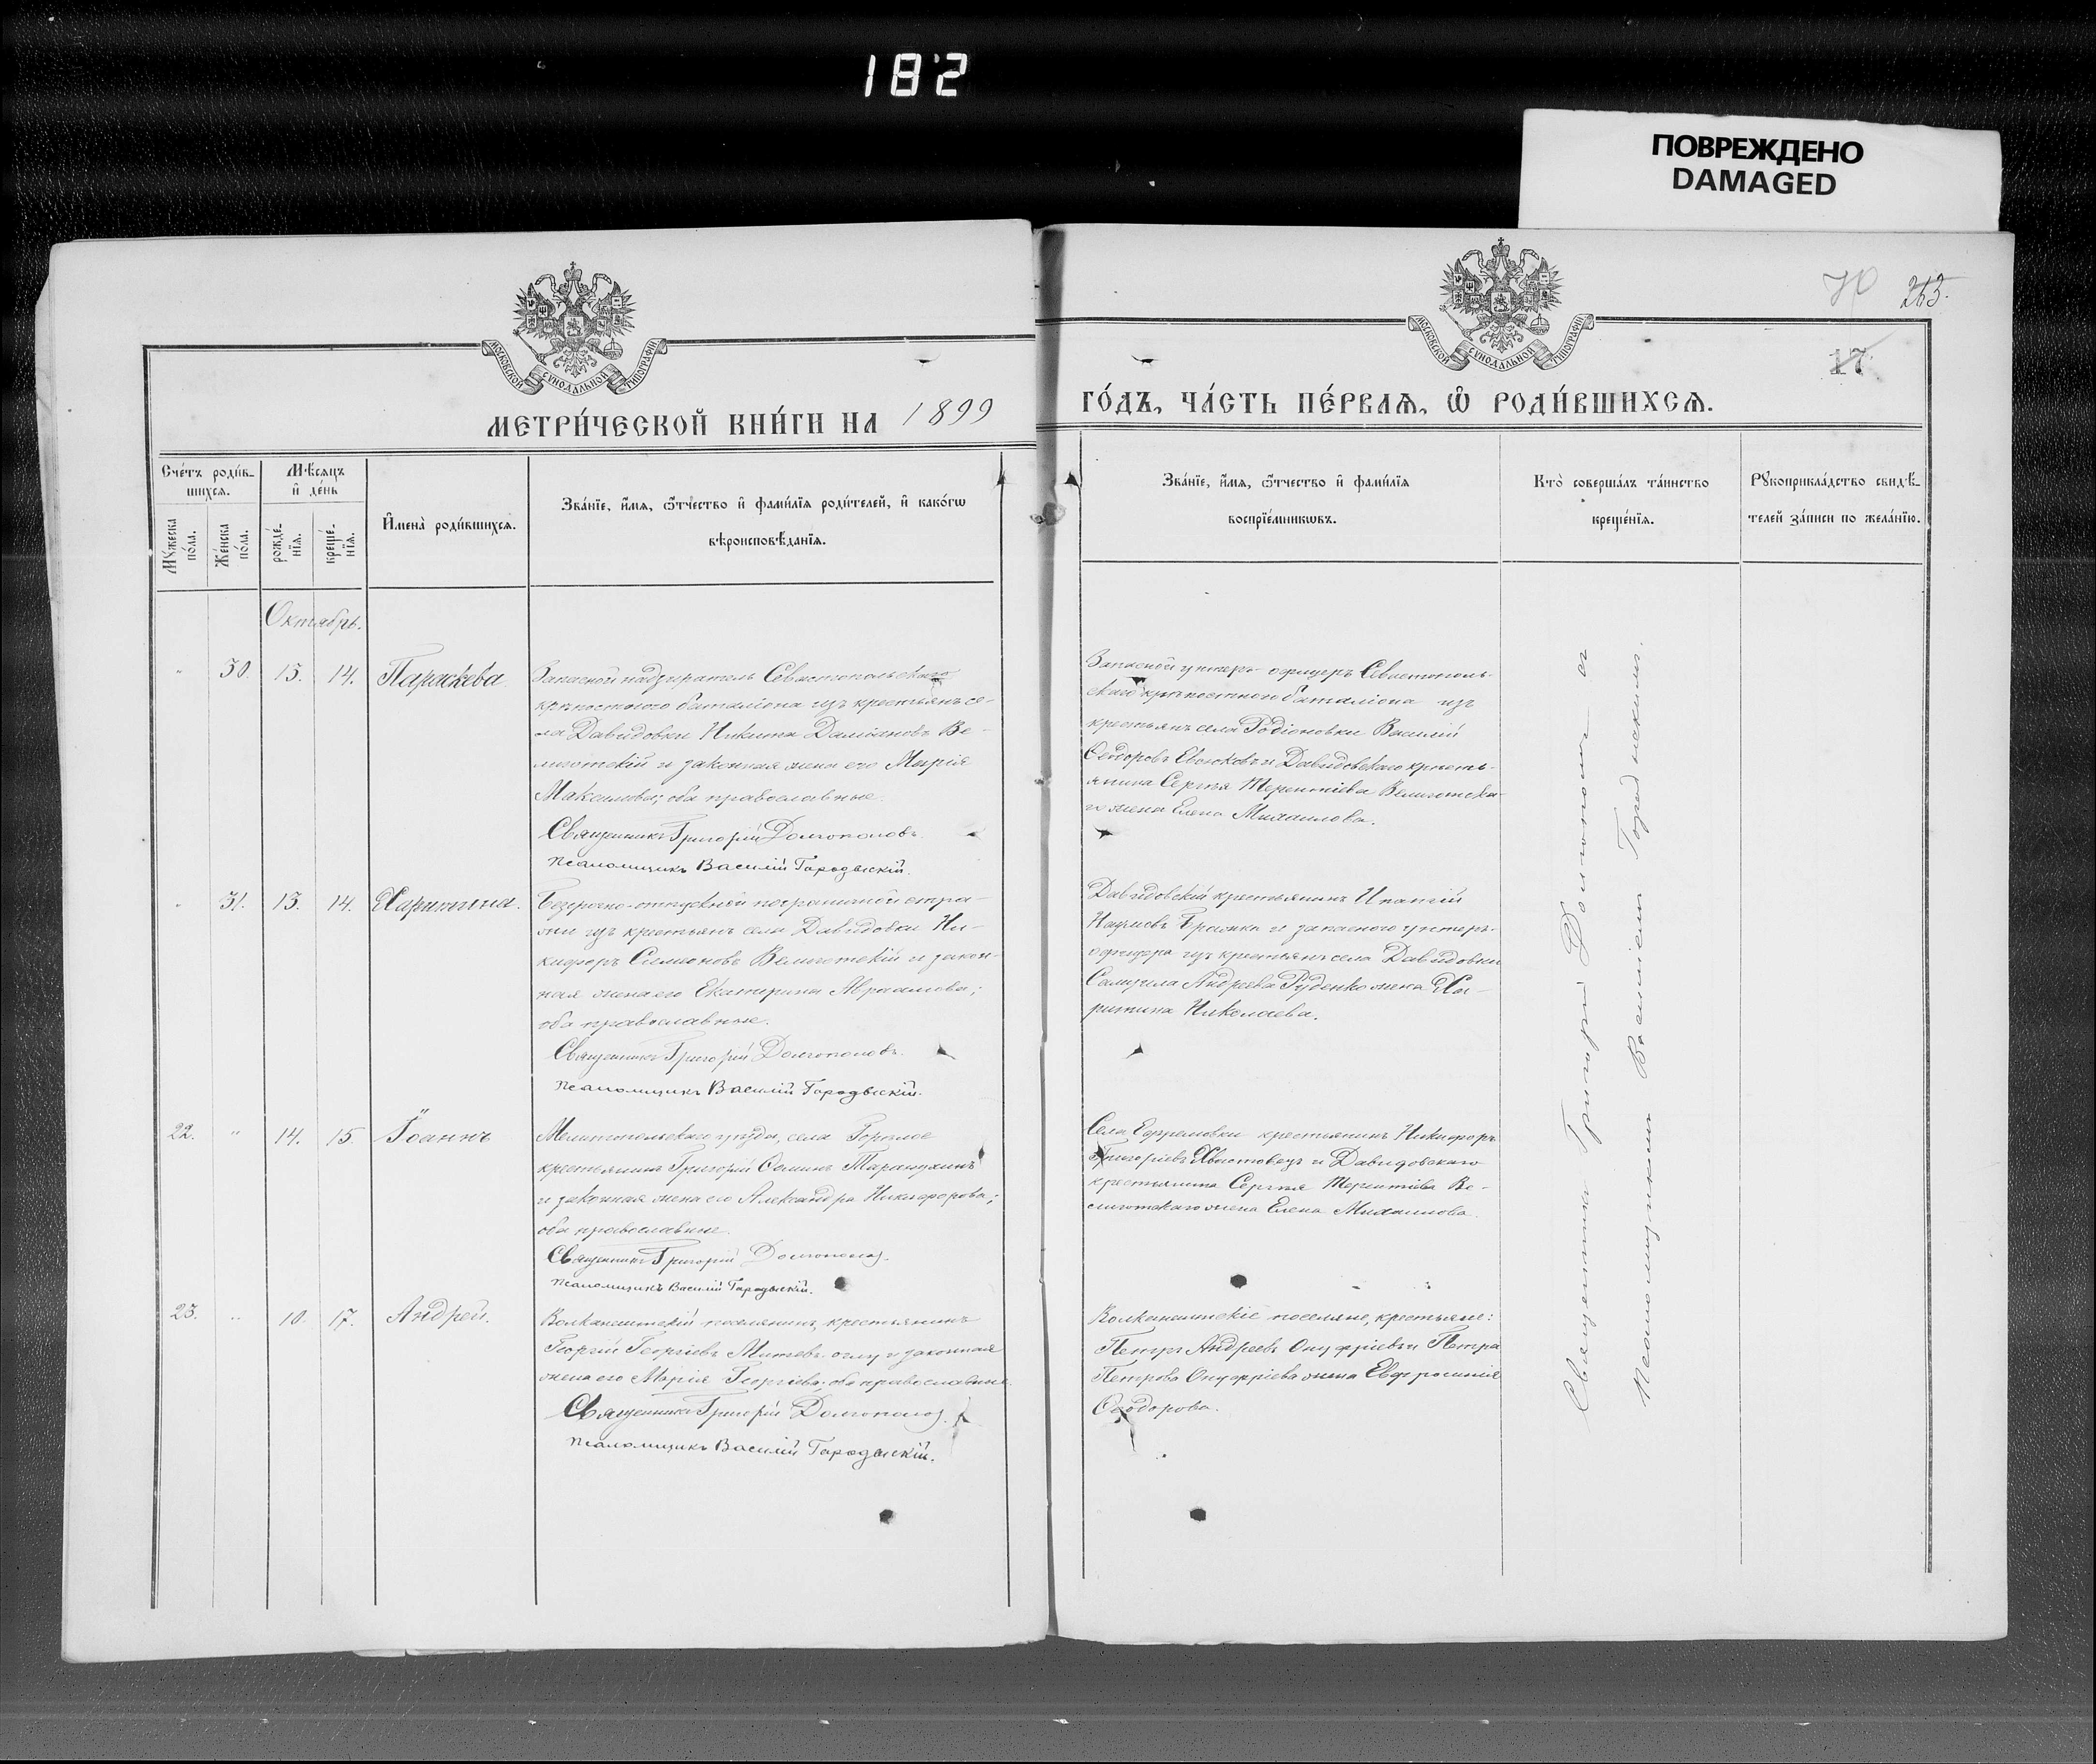 182
ПОВРЕЖДЕНО
DAMAGED
263.
17
МОСКОВСКОЙ СѴНОДАЛЬНОЙ ТИПОГРАФІИ
МОСКОВСКОЙ СѴНОДАЛЬНОЙ ТИПОГРАФІИ
МЕТРИ́ЧЕСКОЙ КНИ́ГИ НА 1899
ГО́ДЪ, ЧА́СТЬ ПЕ́РВАѦ, Ѽ РОДИ́ВШИХСѦ.
Сче́тъ роди́вшихсѧ.
Мꙋ́жеска по́ла.
Же́нска по́ла.
Мѣ́сѧцъ и҆ де́нь
рожде́нїѧ.
креще́нїѧ.
И҆мена̀ роди́вшихсѧ.
Зва́нїе, и҆́мѧ, ѻ҆́тчество и҆ фами́лїѧ роди́телей, и҆ како́гѡ
вѣроисповѣ́данїѧ.
Зва́нїе, и҆́мѧ, ѻ҆́тчество и҆ фами́лїѧ
воспрїе́мникѡвъ.
Кто̀ соверша́лъ та́инство
креще́нїѧ.
Рꙋкоприкла́дство свидѣ́телей за́писи по жела́нїю.
Октябрь.
" 30. 13. 14. Параскева
Запасной надзиратель Севастопольскаго
крѣпостного баталіона изъ крестьянъ се-
ла Давидовки Никита Даміановъ Ве-
лиготскій и законная жена его Марія
Максимова; оба православные.
Священникъ Григорій Долгополовъ.
Псаломщикъ Василій Городыскій.
Запасной унтеръ-офицеръ Севастополь-
скаго крѣпостного баталіона изъ
крестьянъ села Родіоновки Василій
Ѳеодоровъ и Давидовскаго кресть-
янина Сергѣя Терентіева Велиготска-
го жена Елена Михаилова.
" 31. 13. 14. Харитина.
Безсрочно-отпускной пограничной стра-
жи изъ крестьянъ села Давидовки Ни-
кифоръ Симеоновъ Велиготскій и закон-
ная жена его Екатерина Авраамова;
оба православные.
Священникъ Григорій Долгополовъ.
Псаломщикъ Василій Городыскій.
Давидовскій крестьянинъ Ипатій
Наумовъ и запасного унтеръ-
офицера изъ крестьянъ села Давидовки
Самуила Андреева Руденко жена Ха-
ритина Николаева.
22. " 14. 15. Іоаннъ
Мелитопольскаго уѣзда, села Горѣлое
крестьянинъ Григорій Ѳоминъ
и законная жена его Александра Никифорова;
оба православные.
Священникъ Григорій Долгополовъ.
Псаломщикъ Василій Городыскій.
Села Ефремовки крестьянинъ Никифоръ
Григоріевъ Хвостовецъ и Давидовскаго
крестьянина Сергѣя Терентіева Ве-
лиготскаго жена Елена Михаилова.
23. " 10. 17. Андрей.
Волканештскій поселянинъ, крестьянинъ
Георгій Георгіевъ и законная
жена его Марія Георгіева; оба православные.
Священникъ Григорій Долгополовъ.
Псаломщикъ Василій Городыскій.
Волканештскіе поселяне, крестьяне:
Петръ Андреевъ Онуфріевъ и Петра
Петрова Онуфріева жена Евфросинія
Ѳеодорова.
Священникъ Григорій Долгополовъ съ
Псаломщикомъ Василіемъ Городыскимъ.